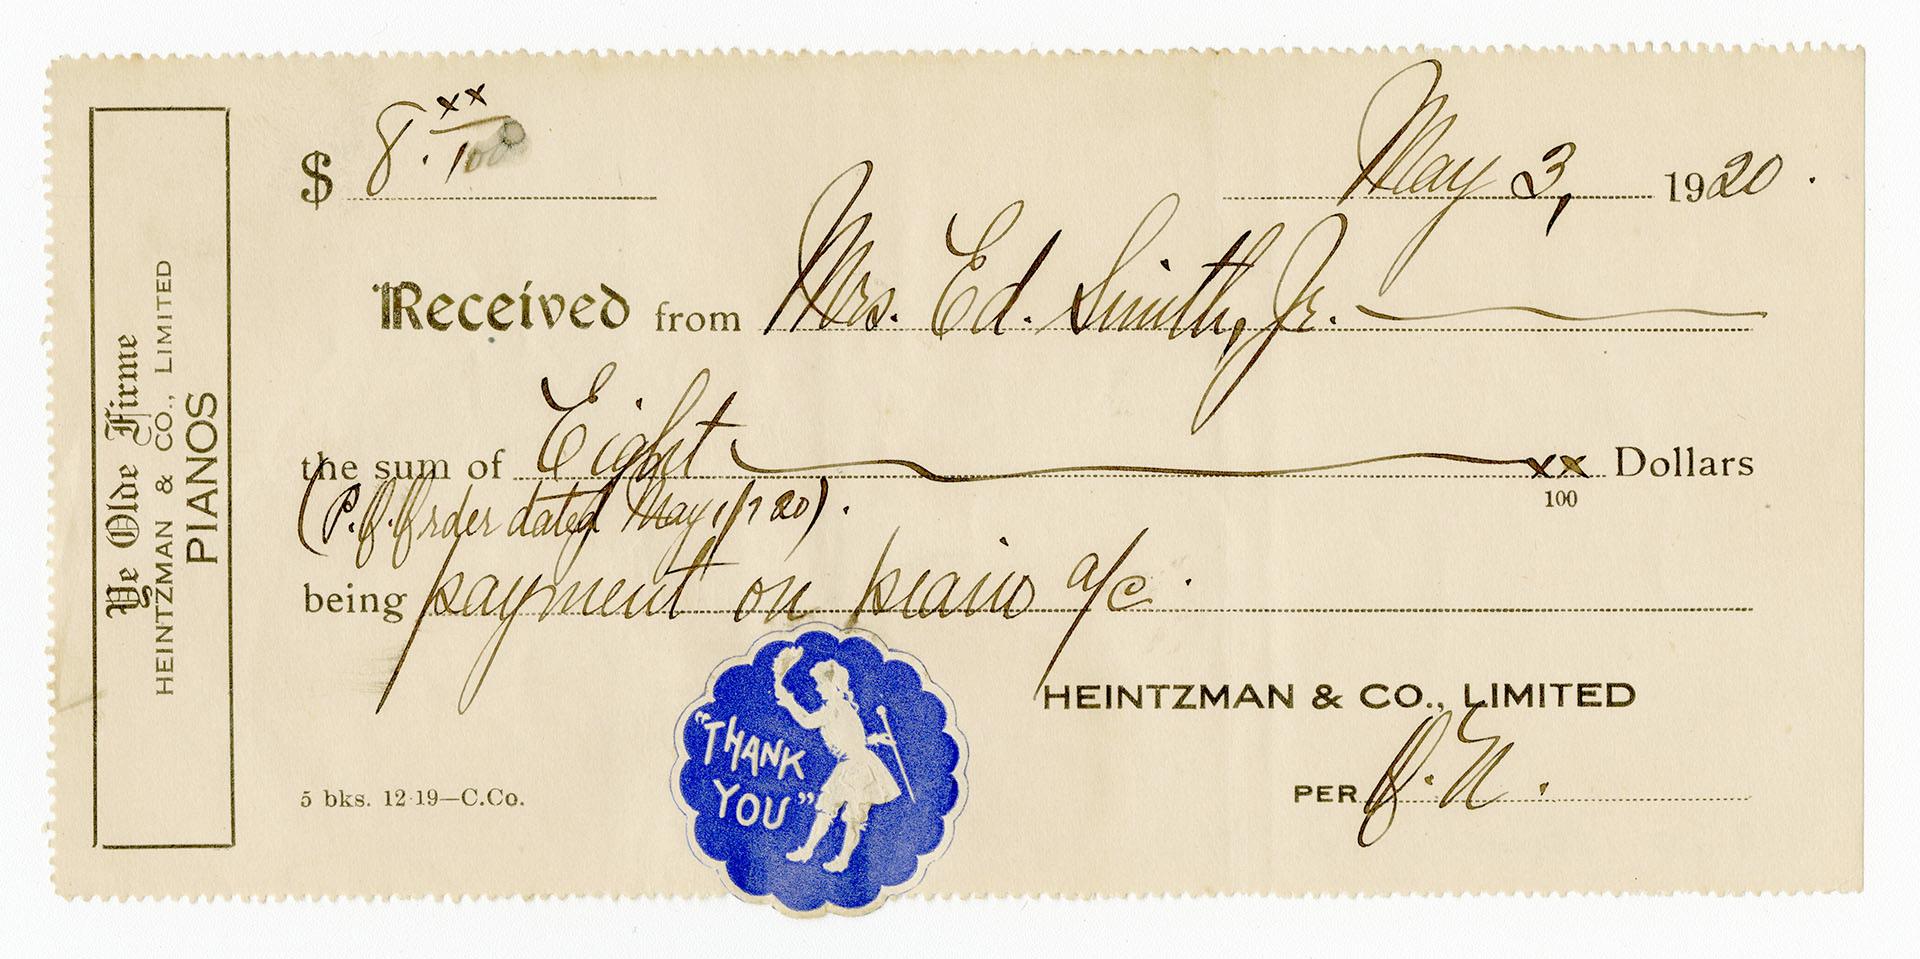 Ye Olde Firme
HEINTZMAN & CO., LIMITED
PIANOS
$ 8. xx/100
May 3, 1920.
Received from Mrs. Ed. Smith, Jr.
the sum of Eight xx/100 Dollars
(P.O. Order dated May 1/20).
being payment on piano a/c.
HEINTZMAN & CO., LIMITED
PER
"THANK
YOU"
5 bks. 12-19—C.Co.